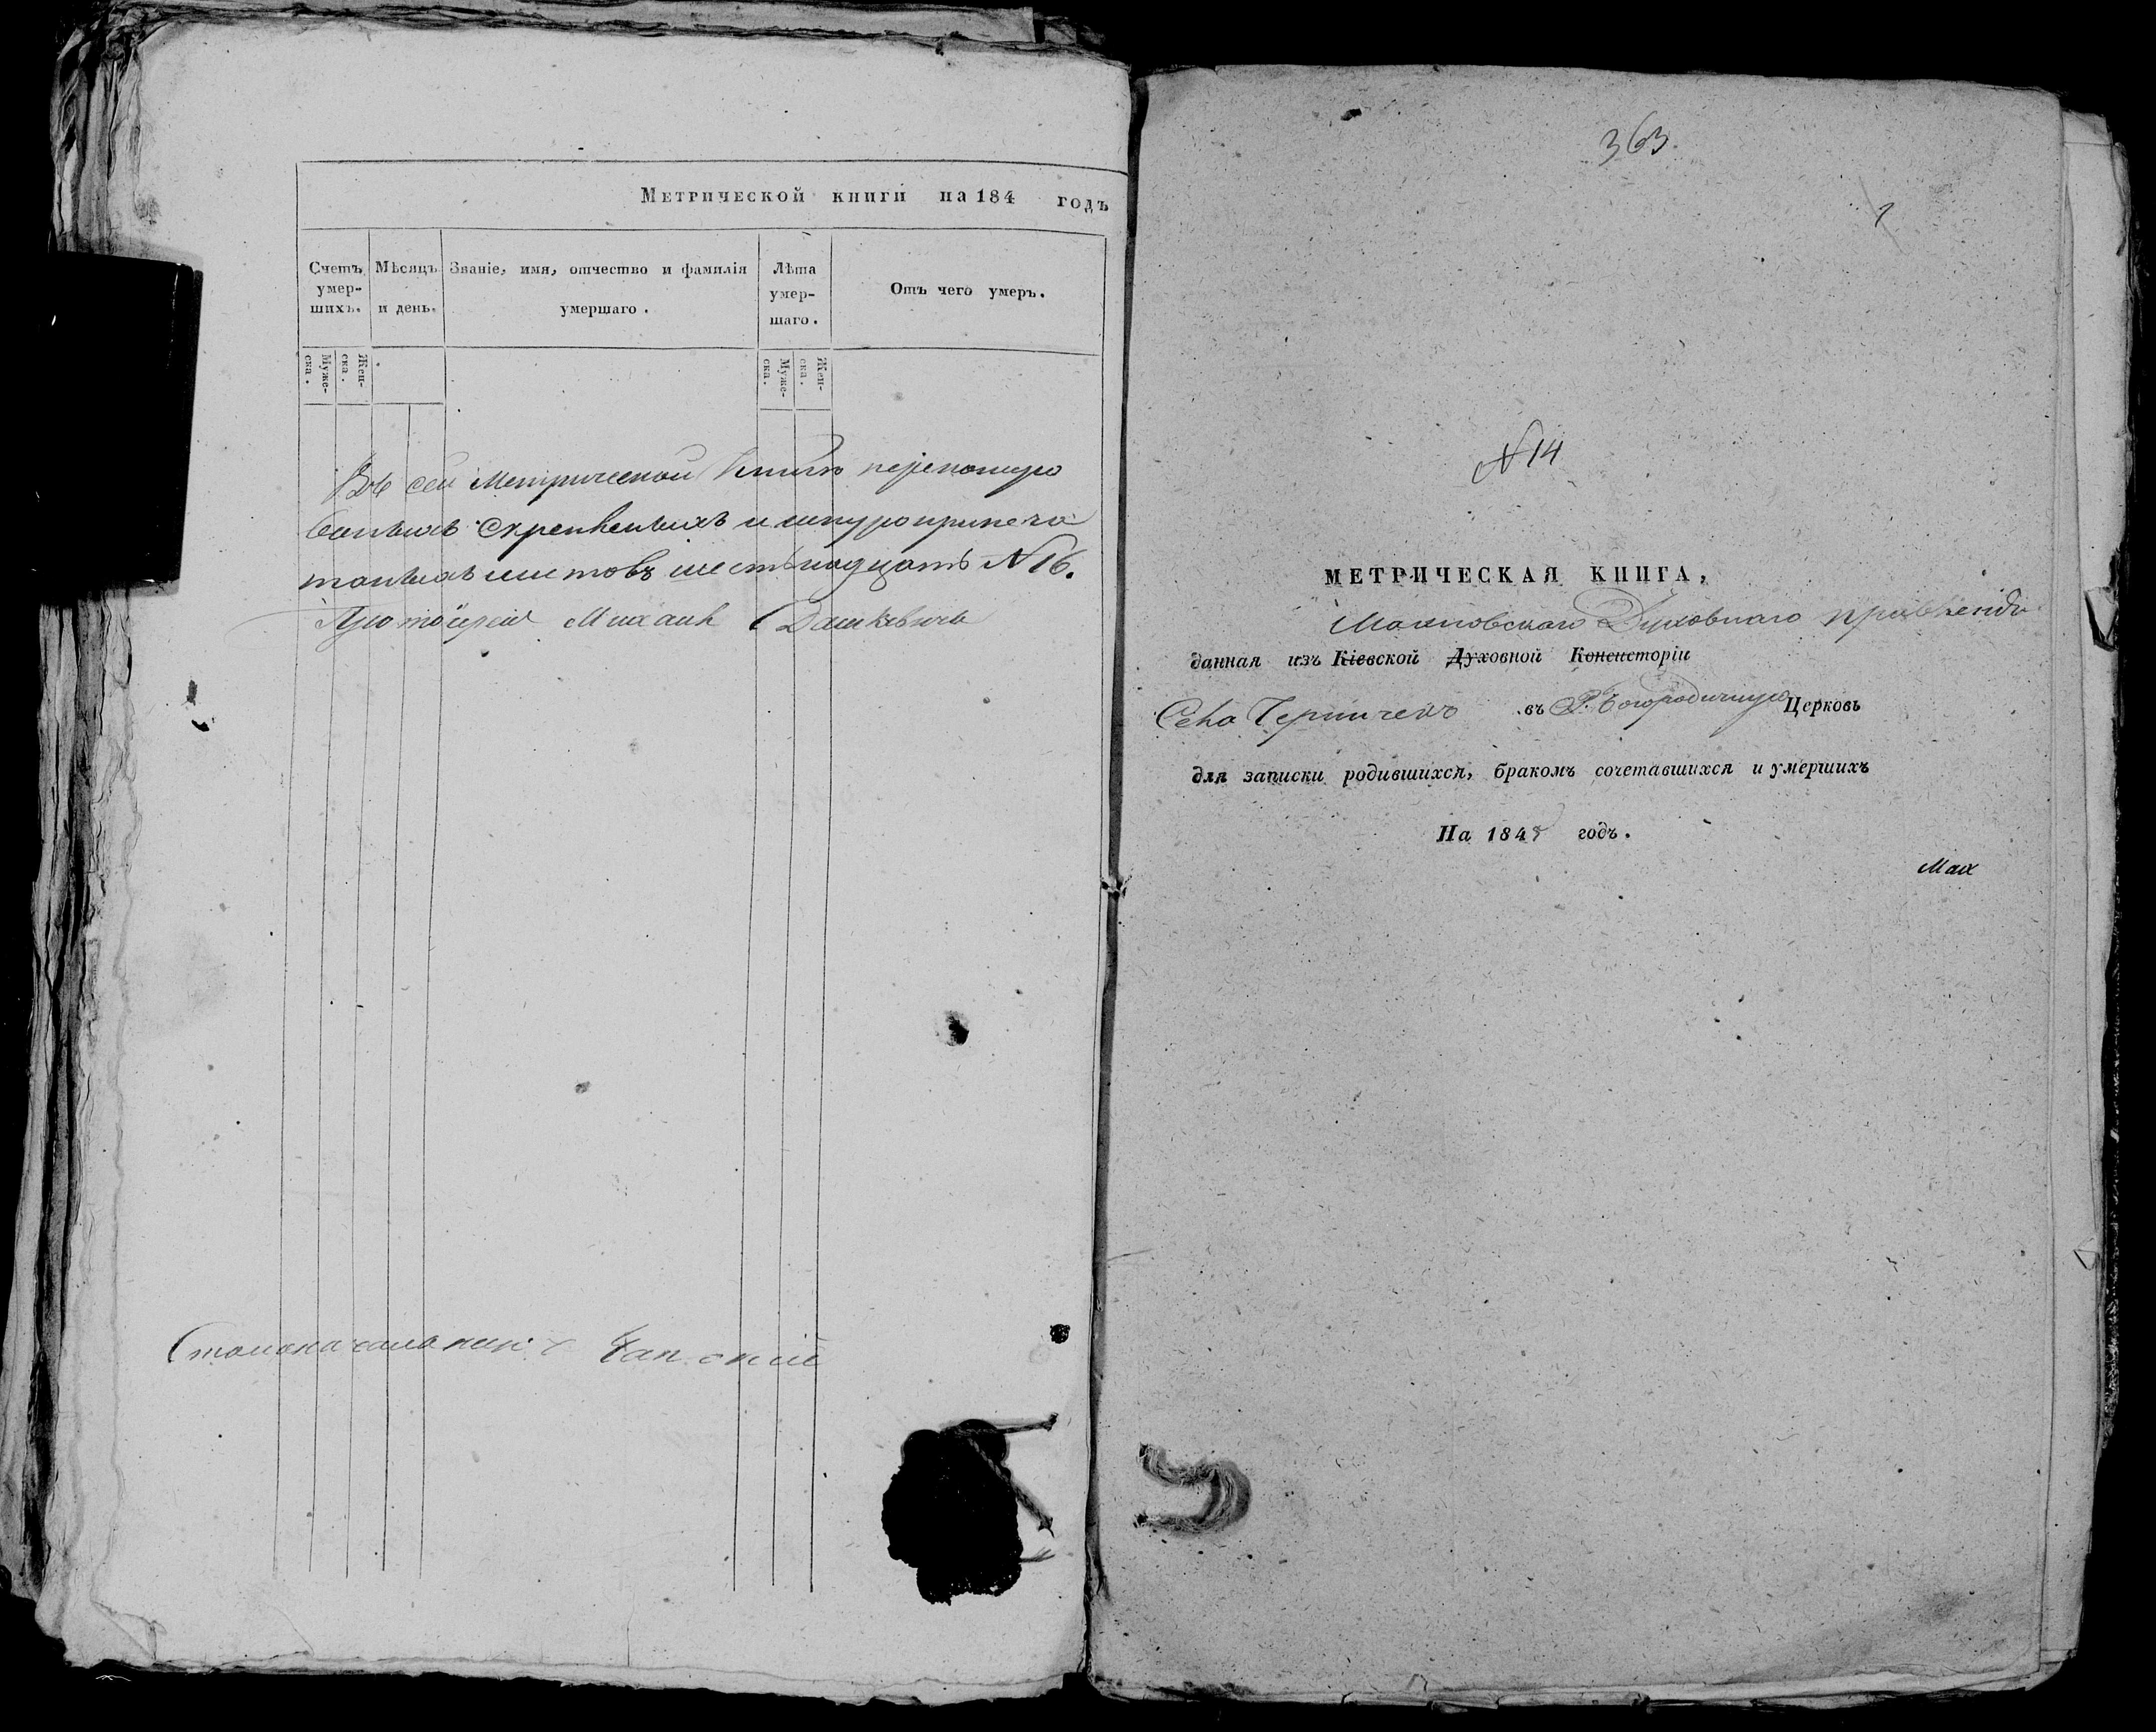 Метрической книги на 184 годъ
Счетъ умер-шихъ.
Мѣсяцъ и день.
Званіе, имя, отчество и фамилія умершаго.
Лѣта умер-шаго.
Отъ чего умеръ.
Муже-ска.
Жен-ска.
Муже-ска.
Жен-ска.
Въ сей Метрической Книгѣ перенумеро
ванныхъ скрепленныхъ и шнуроприпеча
танныхъ листовъ шестьнадцать N16.
Протоіерей Михаилъ Дашкевичь
Столоначальникъ
363
N14
МЕТРИЧЕСКАЯ КНИГА,
Духовнаго правленія
данная изъ Кіевской Духовной Консисторіи
Села въ Р. Богородичную Церковь
для записки родившихся, бракомъ сочетавшихся и умершихъ
На 1848 годъ.
Мах